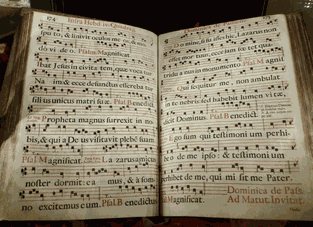 Infra Hebd.
sputo, & linivit oculos me os, & abij
do vi de o. Psal.M agnificat.
Ibat Jesus in civita tem, quæ voca tur
Na im: & ecce defunctus efferebatur
fili us unicus matri suæ. Psal.B enedict
Propheta magnus surrexit in no
bis, & qui a De us visitavit plebē suam
Psal.M agnificat. La zarus amicus
noster dormit: ea mus, & à som
no excitemus eum. Psal.B enedictus
Do mine, si fu isses hic, Lazarus non
esset mor tuus, ecce jam fœ tet qua
tridu a nus in monumento. Psal.M agnif
Qui sequitur me, non ambulat
in te nebris: sed habebit lumen vitæ,
dicit Dominus. Psal.B enedict
E go sum qui testimoni um perhi
be o de me ipso: & testimoni um
perhibet de me, qui mi sit me Pater.
Magnificat. Dominica de Pass.
Ad Matut. Invitat.